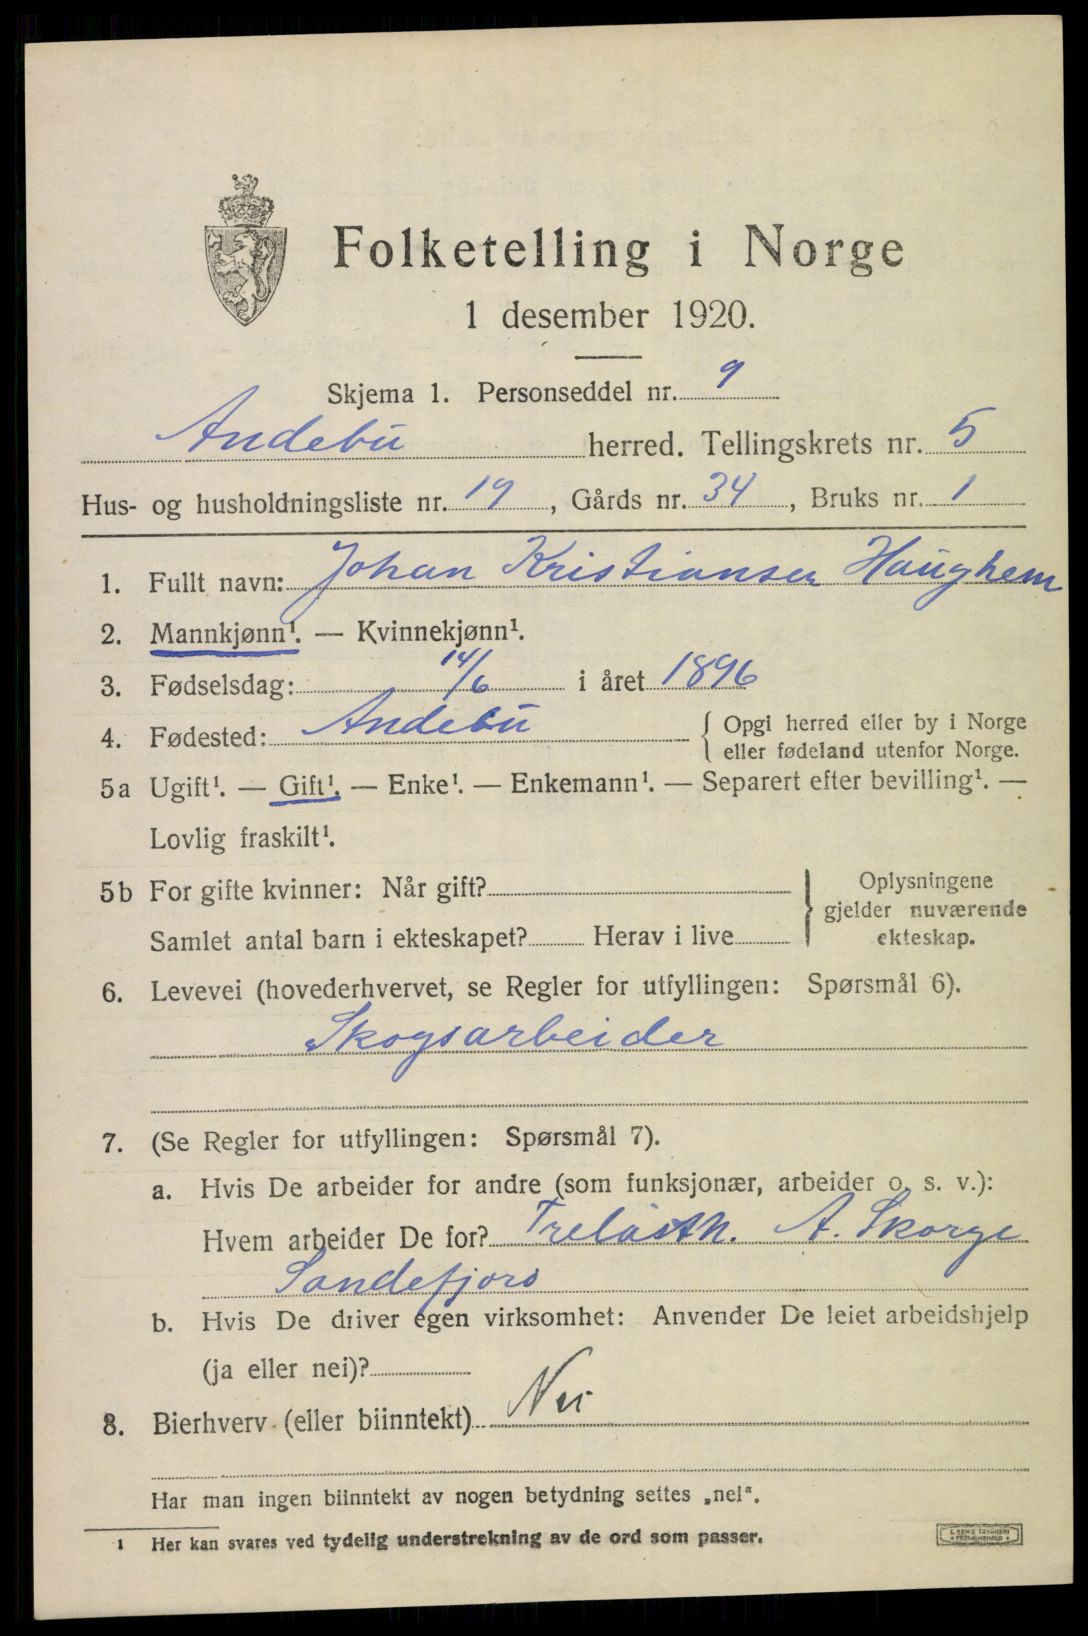 Folketelling i Norge
1 desember 1920.
Skjema 1. Personseddel nr. 9
Andebu herred. Tellingskrets nr. 5
Hus- og husholdningsliste nr. 19, Gårds nr. 34, Bruks nr. 1
1. Fullt navn: Johan Kristiansen Haughem
2. Mannkjønn¹. — Kvinnekjønn¹.
3. Fødselsdag: 14/6 i året 1896
4. Fødested: Andebu { Opgi herred eller by i Norge
eller fødeland utenfor Norge.
5a Ugift¹. — Gift¹. — Enke¹. — Enkemann¹. — Separert efter bevilling¹. —
Lovlig fraskilt¹.
5b For gifte kvinner: Når gift?
Samlet antal barn i ekteskapet? Herav i live
} Oplysningene
gjelder nuværende
ekteskap.
6. Levevei (hovederhvervet, se Regler for utfyllingen: Spørsmål 6).
Skogsarbeider
7. (Se Regler for utfyllingen: Spørsmål 7).
a. Hvis De arbeider for andre (som funksjonær, arbeider o. s. v.):
Hvem arbeider De for? Trelasth. A. Skorge
Sandefjord
b. Hvis De driver egen virksomhet: Anvender De leiet arbeidshjelp
(ja eller nei)?
8. Bierhverv (eller biinntekt) Nei
Har man ingen biinntekt av nogen betydning settes „nei".
¹ Her kan svares ved tydelig understrekning av de ord som passer.